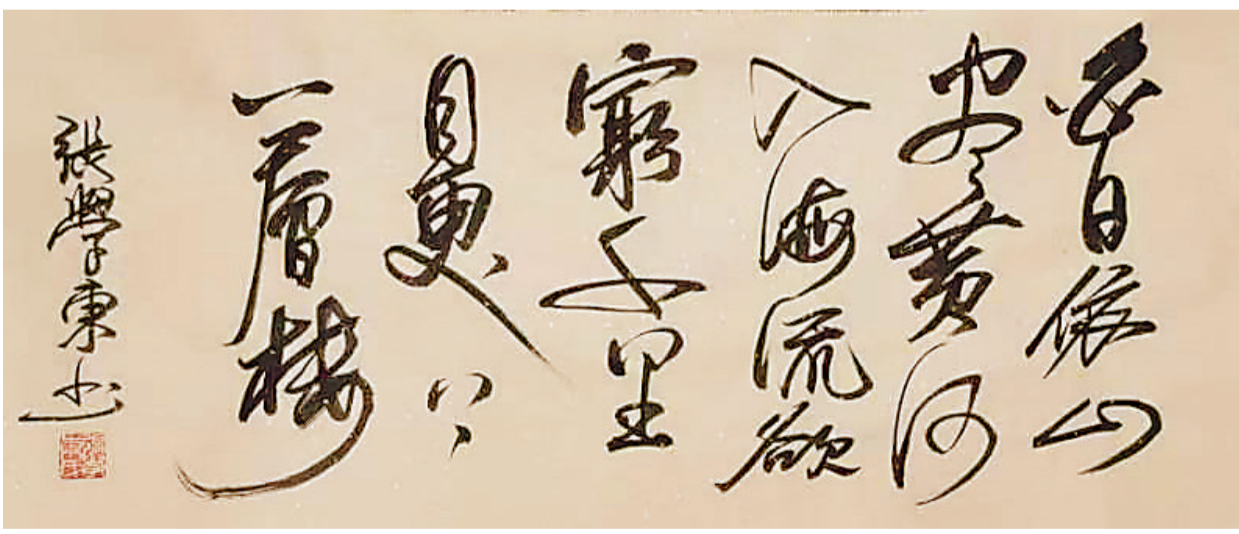 白日依山
盡黃河
入海流欲
窮千里
目更上
一層樓
張學東書